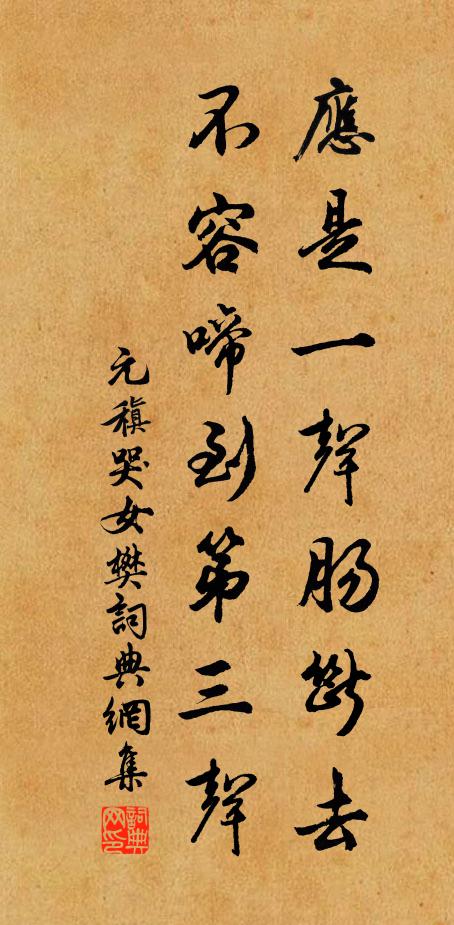 應是一聲腸斷去
不容啼到第三聲
元稹哭女樊詞典網集
詞典網印